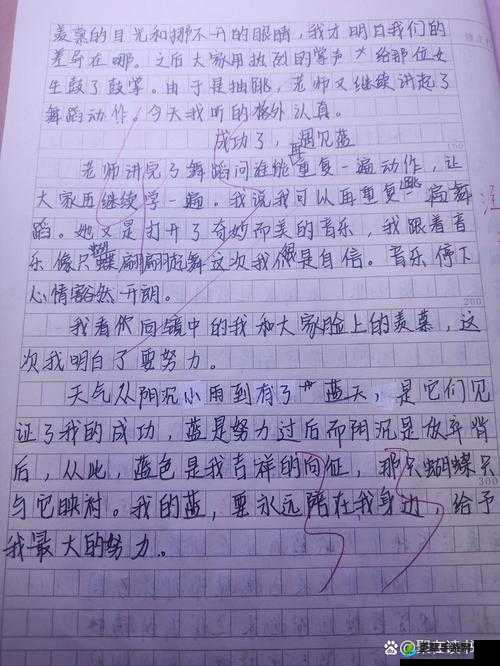 羡慕的目光和挪不开的眼睛，我才明白我们的
差异在哪。之后大家用热烈的掌声给那位女
生鼓了鼓掌。由于是抽跳，老师又继续讲起了
舞蹈动作。今天我听的格外认真。
成功了，遇见蓝
老师讲完了舞蹈问谁能再重复一遍动作，让
大家再继续学一遍。我说我可以再重复跳一遍舞
蹈。她又是打开了奇妙而美的音乐，我跟着音
乐像只蝴蝶翩翩起舞这次我很是自信。音乐停下
心情豁然开朗。
我看向镜中的我和大家脸上的羡慕，这
次我明白了要努力。
天气从阴沉小雨到有了蓝天，是它们见
证了我的成功，蓝是努力过后而阴沉是放弃背
后，从此，蓝色是我吉祥的向征，那只蝴蝶只
与它映衬。我的蓝，要永远陪在我身边，给予
我最大的努力。
100
200
300